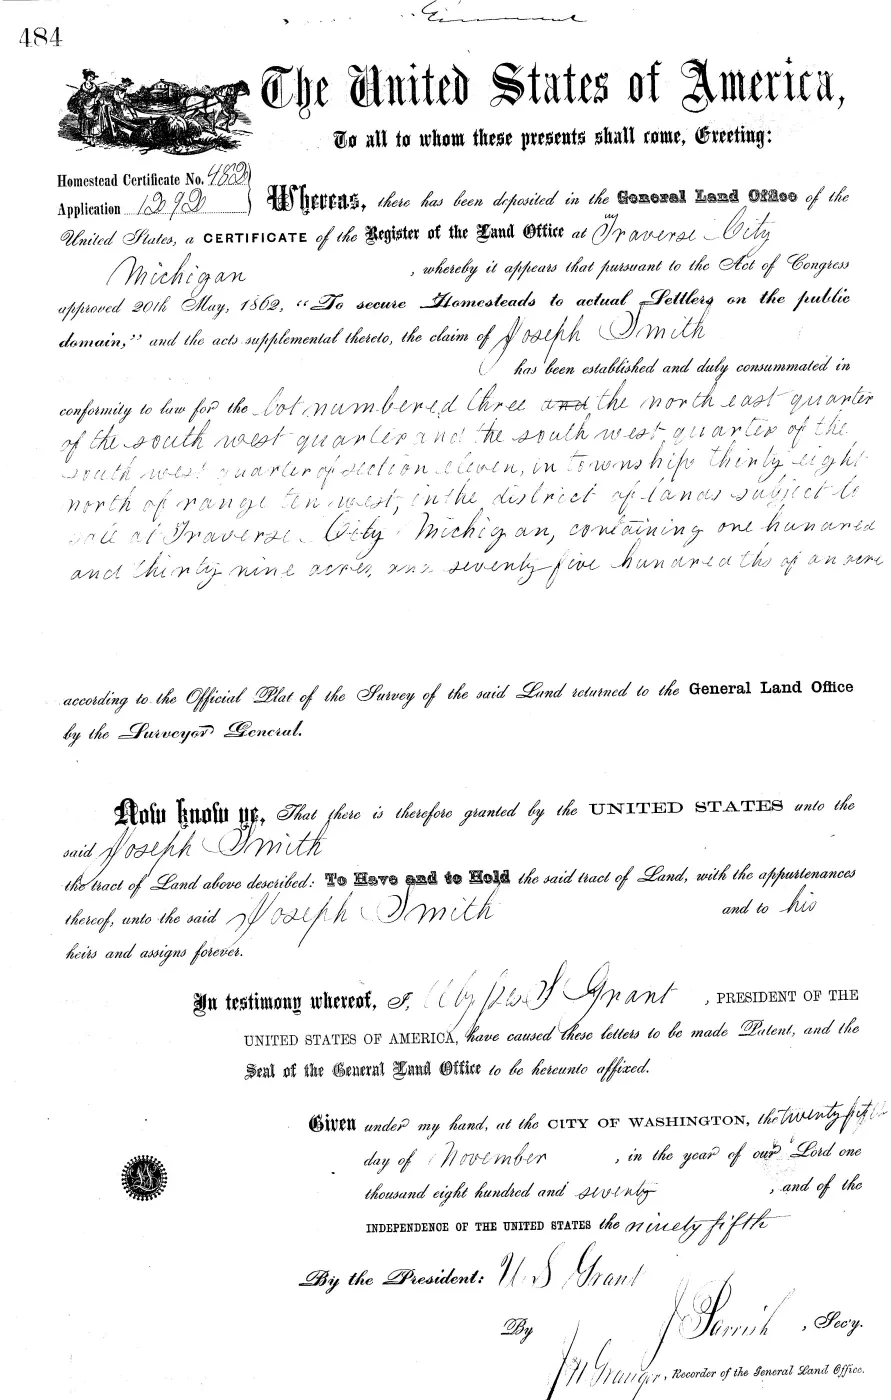 484
The United States of America,
To all to whom these presents shall come, Greeting:
Homestead Certificate No. 482
Application 1292
Whereas, there has been deposited in the General Land Office of the
United States, a CERTIFICATE of the Register of the Land Office at Traverse City
Michigan , whereby it appears that pursuant to the Act of Congress
approved 20th May, 1862, “To secure Homesteads to actual Settlers on the public
domain,” and the acts supplemental thereto, the claim of Joseph Smith
has been established and duly consummated in
conformity to law for the lot numbered three and the north east quarter
of the south west quarter and the south west quarter of the
south west quarter of section eleven, in township thirty eight
north of range ten west, in the district of lands subject to
sale at Traverse City Michigan, containing one hundred
and thirty nine acres, and seventy five hundredths of an acre
according to the Official Plat of the Survey of the said Land returned to the General Land Office
by the Surveyor General.
Now know ye, That there is therefore granted by the UNITED STATES unto the
said Joseph Smith
the tract of Land above described: To Have and to Hold the said tract of Land, with the appurtenances
thereof, unto the said Joseph Smith and to his
heirs and assigns forever.
In testimony whereof, I, Ulysses S Grant , PRESIDENT OF THE
UNITED STATES OF AMERICA, have caused these letters to be made Patent, and the
Seal of the General Land Office to be hereunto affixed.
Given under my hand, at the CITY OF WASHINGTON, the twenty fifth
day of November , in the year of our Lord one
thousand eight hundred and seventy , and of the
INDEPENDENCE OF THE UNITED STATES the ninety fifth
By the President: U S Grant
By J Parrish , Sec'y.
J N Granger, Recorder of the General Land Office.